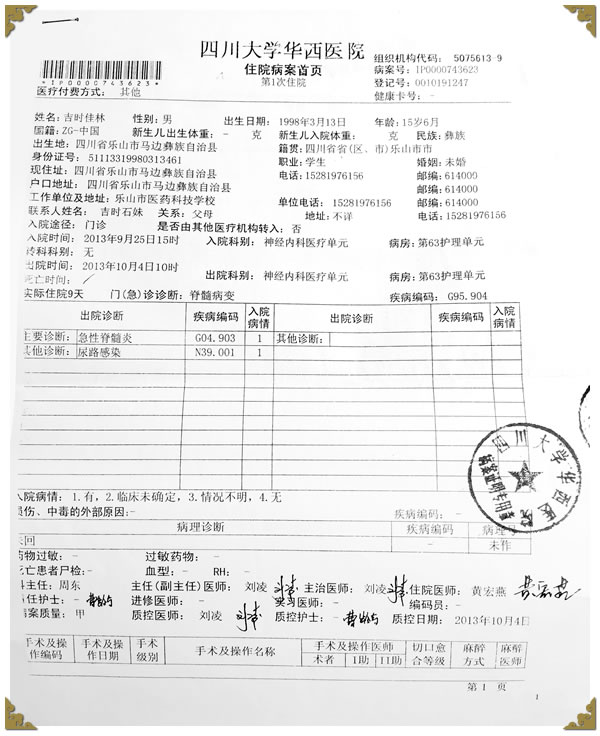 四川大学华西医院
住院病案首页
第1次住院
组织机构代码: 5075613 9
病案号: IP0000743623
登记号: 0010191247
健康卡号: -
*IP0000743623*
医疗付费方式: 其他
姓名: 吉时佳林 性别: 男 出生日期: 1998年3月13日 年龄: 15岁6月
国籍: ZG-中国 新生儿出生体重: - 克 新生儿入院体重: - 克 民族: 彝族
出生地: 四川省乐山市马边彝族自治县 籍贯: 四川省省(区、市)乐山市市
身份证号: 51113319980313461 职业: 学生 婚姻: 未婚
现住址: 四川省乐山市马边彝族自治县 电话: 15281976156 邮编: 614000
户口地址: 四川省乐山市马边彝族自治县 邮编: 614000
工作单位及地址: 乐山市医药科技学校 单位电话: 15281976156 邮编: 614000
联系人姓名: 吉时石妹 关系: 父母 地址: 不详 电话: 15281976156
入院途径: 门诊 是否由其他医疗机构转入: 否
入院时间: 2013年9月25日15时 入院科别: 神经内科医疗单元 病房: 第63护理单元
转科科别: 无
出院时间: 2013年10月4日10时 出院科别: 神经内科医疗单元 病房: 第63护理单元
死亡时间: /
实际住院9天 门(急)诊诊断: 脊髓病变 疾病编码: G95.904
出院诊断 疾病编码 入院病情 出院诊断 疾病编码 入院病情
主要诊断: 急性脊髓炎 G04.903 1 其他诊断:
其他诊断: 尿路感染 N39.001 1
入院病情: 1.有, 2.临床未确定, 3.情况不明, 4.无
损伤、中毒的外部原因: - 疾病编码: -
病理诊断 疾病编码 病理号
未回 - 未作
药物过敏: - 过敏药物: -
死亡患者尸检: - 血型: - RH: -
科主任: 周东 主任(副主任)医师: 刘凌 主治医师: 刘凌 住院医师: 黄宏燕 黄宏燕
责任护士: - 进修医师: - 实习医师: - 编码员: -
病案质量: 甲 质控医师: 刘凌 质控护士: - 质控日期: 2013年10月4日
手术及操作编码 手术及操作日期 手术级别 手术及操作名称 手术及操作医师 术者 I助 II助 切口愈合等级 麻醉方式 麻醉医师
第 1 页
1
四川大学华西医院